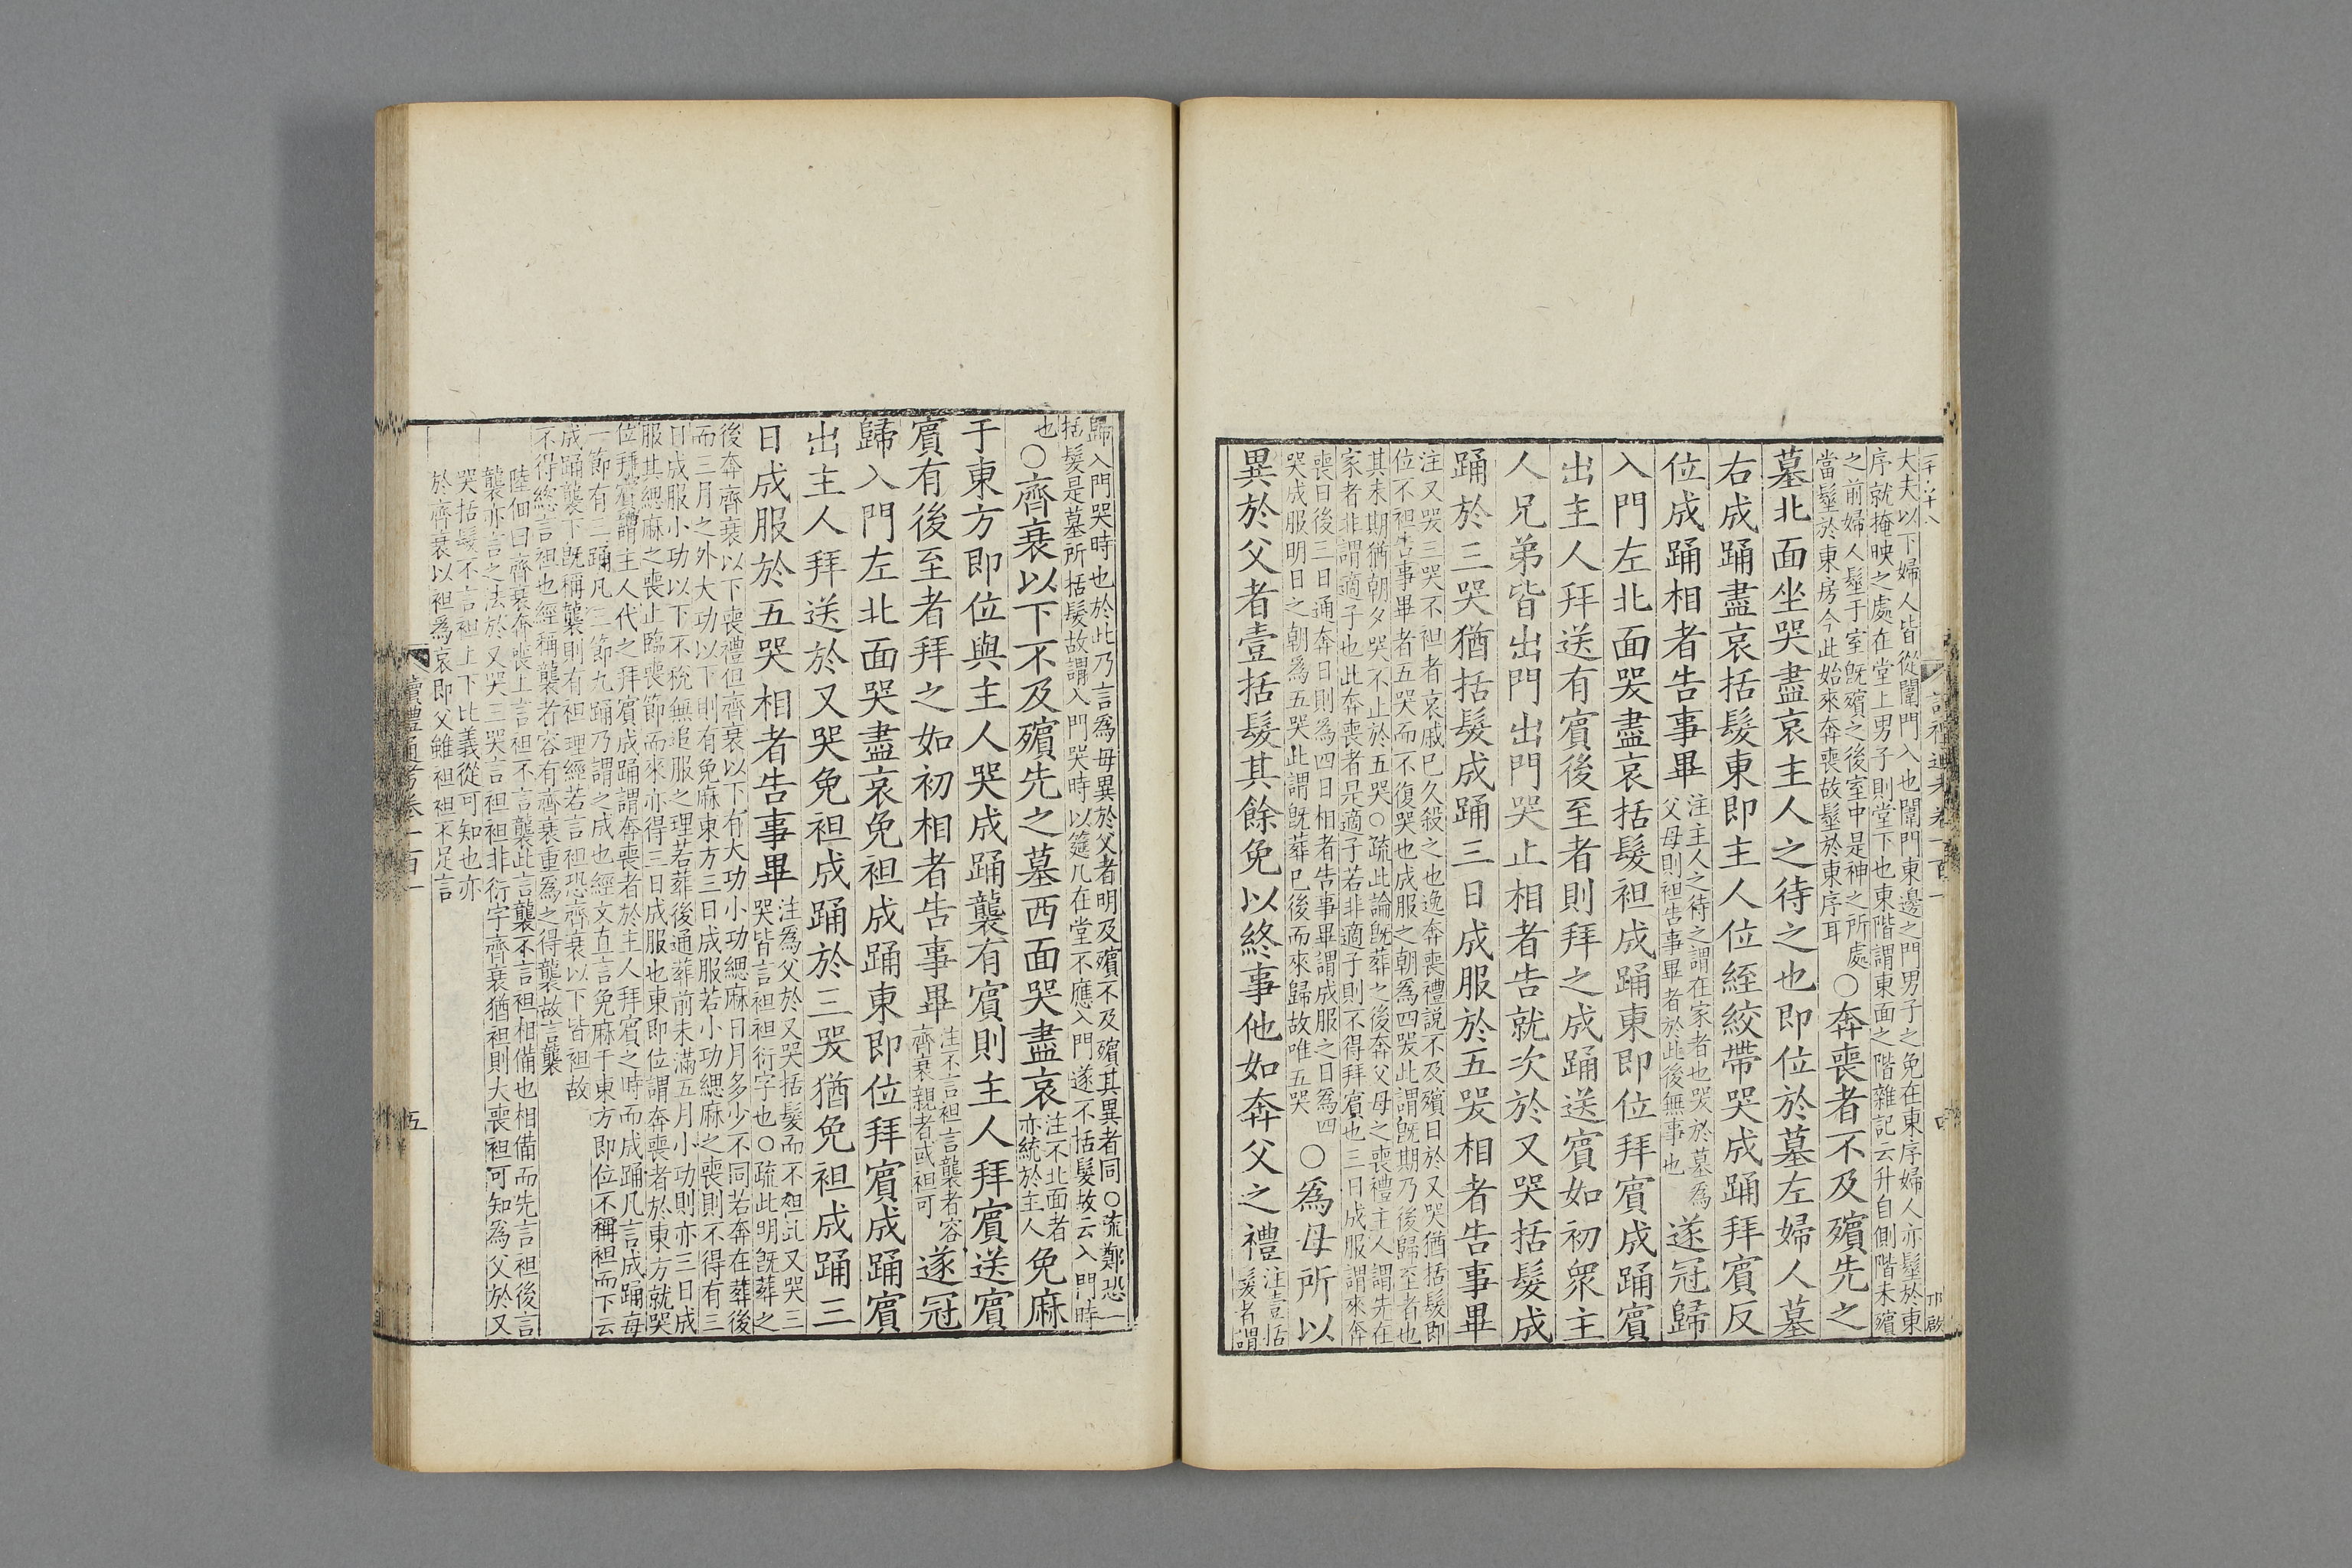 大夫以下婦人皆從闈門入也闈門東邊之門男子之免在東序婦人亦髽於東
序就掩映之處在堂上男子則堂下也東階謂東面之階雜記云升自側階未殯
之前婦人髽于室旣殯之後室中是神之所處
當髽於東房今此始來奔喪故髽於東序耳
○奔喪者不及殯先之
墓北面坐哭盡哀主人之待之也即位於墓左婦人墓
右成踊盡哀括髮東即主人位絰絞帶哭成踊拜賓反
位成踊相者告事畢
注主人之待之謂在家者也哭於墓爲
父母則袒告事畢者於此後無事也
遂冠歸
入門左北面哭盡哀括髮袒成踊東即位拜賓成踊賓
出主人拜送有賓後至者則拜之成踊送賓如初眾主
人兄弟皆出門出門哭止相者告就次於又哭括髮成
踊於三哭猶括髮成踊三日成服於五哭相者告事畢
注又哭三哭不袒者哀戚已久殺之也逸奔喪禮說不及殯日於又哭猶括髮即
位不袒告事畢者五哭而不復哭也成服之朝爲四哭此謂旣期乃後歸至者也
其未期猶朝夕哭不止於五哭○疏此論旣葬之後奔父母之喪禮主人謂先在
家者非謂適子也此奔喪者是適子若非適子則不得拜賓也三日成服謂來奔
喪日後三日通奔日則爲四日相者告事畢謂成服之日爲四
哭成服明日之朝爲五哭此謂旣葬已後而來歸故唯五哭
○爲母所以
異於父者壹括髮其餘免以終事他如奔父之禮
注壹括
髮者謂
歸入門哭時也於此乃言爲母異於父者明及殯不及殯其異者同○疏鄭恐一
括髮是墓所括髮故謂入門哭時以筵几在堂不應入門遂不括髮故云入門時
也
○齊衰以下不及殯先之墓西面哭盡哀
注不北面者
亦統於主人
免麻
于東方即位與主人哭成踊襲有賓則主人拜賓送賓
賓有後至者拜之如初相者告事畢
注不言袒言襲者容
齊衰親者或袒可
遂冠
歸入門左北面哭盡哀免袒成踊東即位拜賓成踊賓
出主人拜送於又哭免袒成踊於三哭猶免袒成踊三
日成服於五哭相者告事畢
注爲父於又哭括髮而不袒此又哭三
哭皆言袒袒衍字也○疏此明旣葬之
後奔齊衰以下喪禮但齊衰以下有大功小功緦麻日月多少不同若奔在葬後
而三月之外大功以下則有免麻東方三日成服若小功緦麻之喪則不得有三
日成服小功以下不稅無追服之理若葬後通葬前未滿五月小功則亦三日成
服其緦麻之喪止臨喪節而來亦得三日成服也東即位謂奔喪者於東方就哭
位拜賓謂主人代之拜賓成踊謂奔喪者於主人拜賓之時而成踊凡言成踊每
一節有三踊凡三節九踊乃謂之成也經文直言免麻于東方即位不稱袒而下云
成踊襲下旣稱襲則有袒理經若言袒恐齊衰以下皆袒故
不得總言袒也經稱襲者容有齊衰重爲之得襲故言襲
陸佃曰齊衰奔喪上言袒不言襲此言襲不言袒相備也相備而先言袒後言
襲亦言之法於又哭三哭言袒袒非衍字齊衰猶袒則大喪袒可知爲父於又
哭括髮不言袒上下比義從可知也亦
於齊衰以袒爲哀即父雖袒袒不足言
讀禮通考卷一百一
五